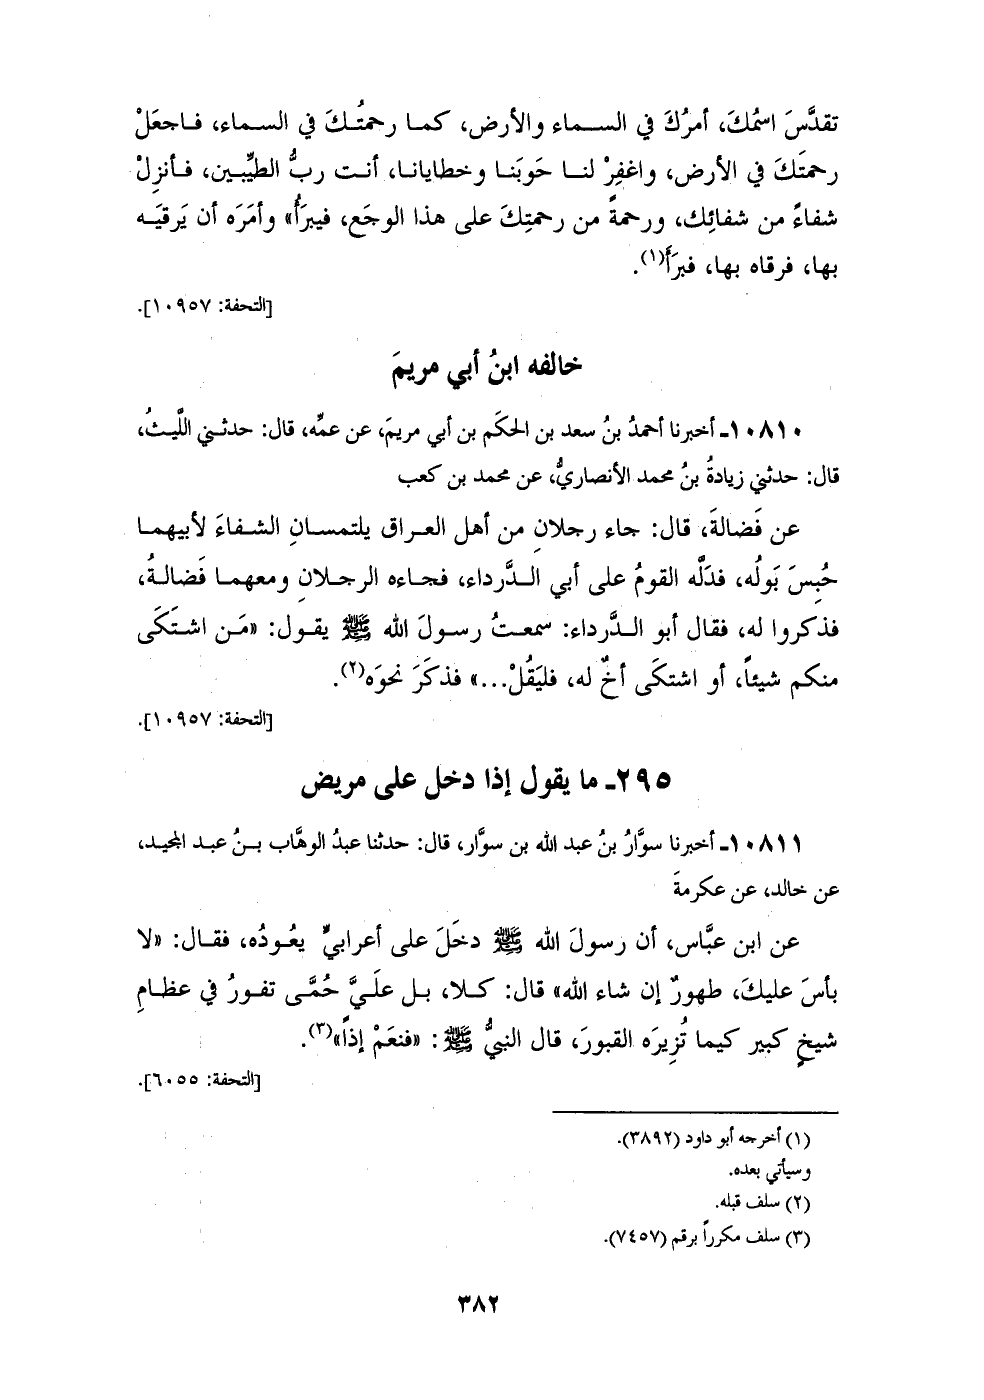 تقدَّسَ اسمُكَ، أمرُكَ في السماء والأرض، كما رحمتُكَ في السماء، فاجعَلْ
رحمتَكَ في الأرض، واغفِرْ لنا حَوبَنا وخطايانا، أنت ربُّ الطيِّبين، فأنزِلْ
شفاءً من شفائِك، ورحمةً من رحمتِكَ على هذا الوجَع، فيبرَأُ» وأمَرَه أن يَرقيَه
بها، فرقاه بها، فبرَأَ(١).
[التحفة: ١٠٩٥٧].
خالفه ابنُ أبي مريمَ
١٠٨١٠ـ أخبرنا أحمدُ بنُ سعد بن الحكَم بن أبي مريمَ، عن عمِّه، قال: حدثني اللَّيثُ،
قال: حدثني زيادةُ بنُ محمد الأنصاريُّ، عن محمد بن كعب
عن فَضالةَ، قال: جاء رجلانِ من أهل العراق يلتمسانِ الشفاءَ لأبيهما
حُبِسَ بَولُه، فدَلَّه القومُ على أبي الدَّرداء، فجاءه الرجلانِ ومعهما فَضالةُ،
فذكروا له، فقال أبو الدَّرداء: سمعتُ رسولَ الله ﷺ يقول: «مَن اشتَكَى
منكم شيئاً، أو اشتكَى أخٌ له، فليَقُلْ...» فذكَرَ نحوَه(٢).
[التحفة: ١٠٩٥٧].
٢٩٥ـ ما يقول إذا دخل على مريض
١٠٨١١ـ أخبرنا سوَّارُ بنُ عبد الله بن سوَّار، قال: حدثنا عبدُ الوهَّاب بنُ عبد المجيد،
عن خالد، عن عكرمةَ
عن ابن عبَّاس، أن رسولَ الله ﷺ دخَلَ على أعرابيٍّ يعُودُه، فقال: «لا
بأسَ عليكَ، طهورٌ إن شاء الله» قال: كلا، بل علَيَّ حُمَّى تفورُ في عظامِ
شيخٍ كبير كيما تُزِيرَه القبورَ، قال النبيُّ ﷺ: «فنعَمْ إذاً»(٣).
[التحفة: ٦٠٥٥].
(١) أخرجه أبو داود (٣٨٩٢).
وسيأتي بعده.
(٢) سلف قبله.
(٣) سلف مكرراً برقم (٧٤٥٧).
٣٨٢